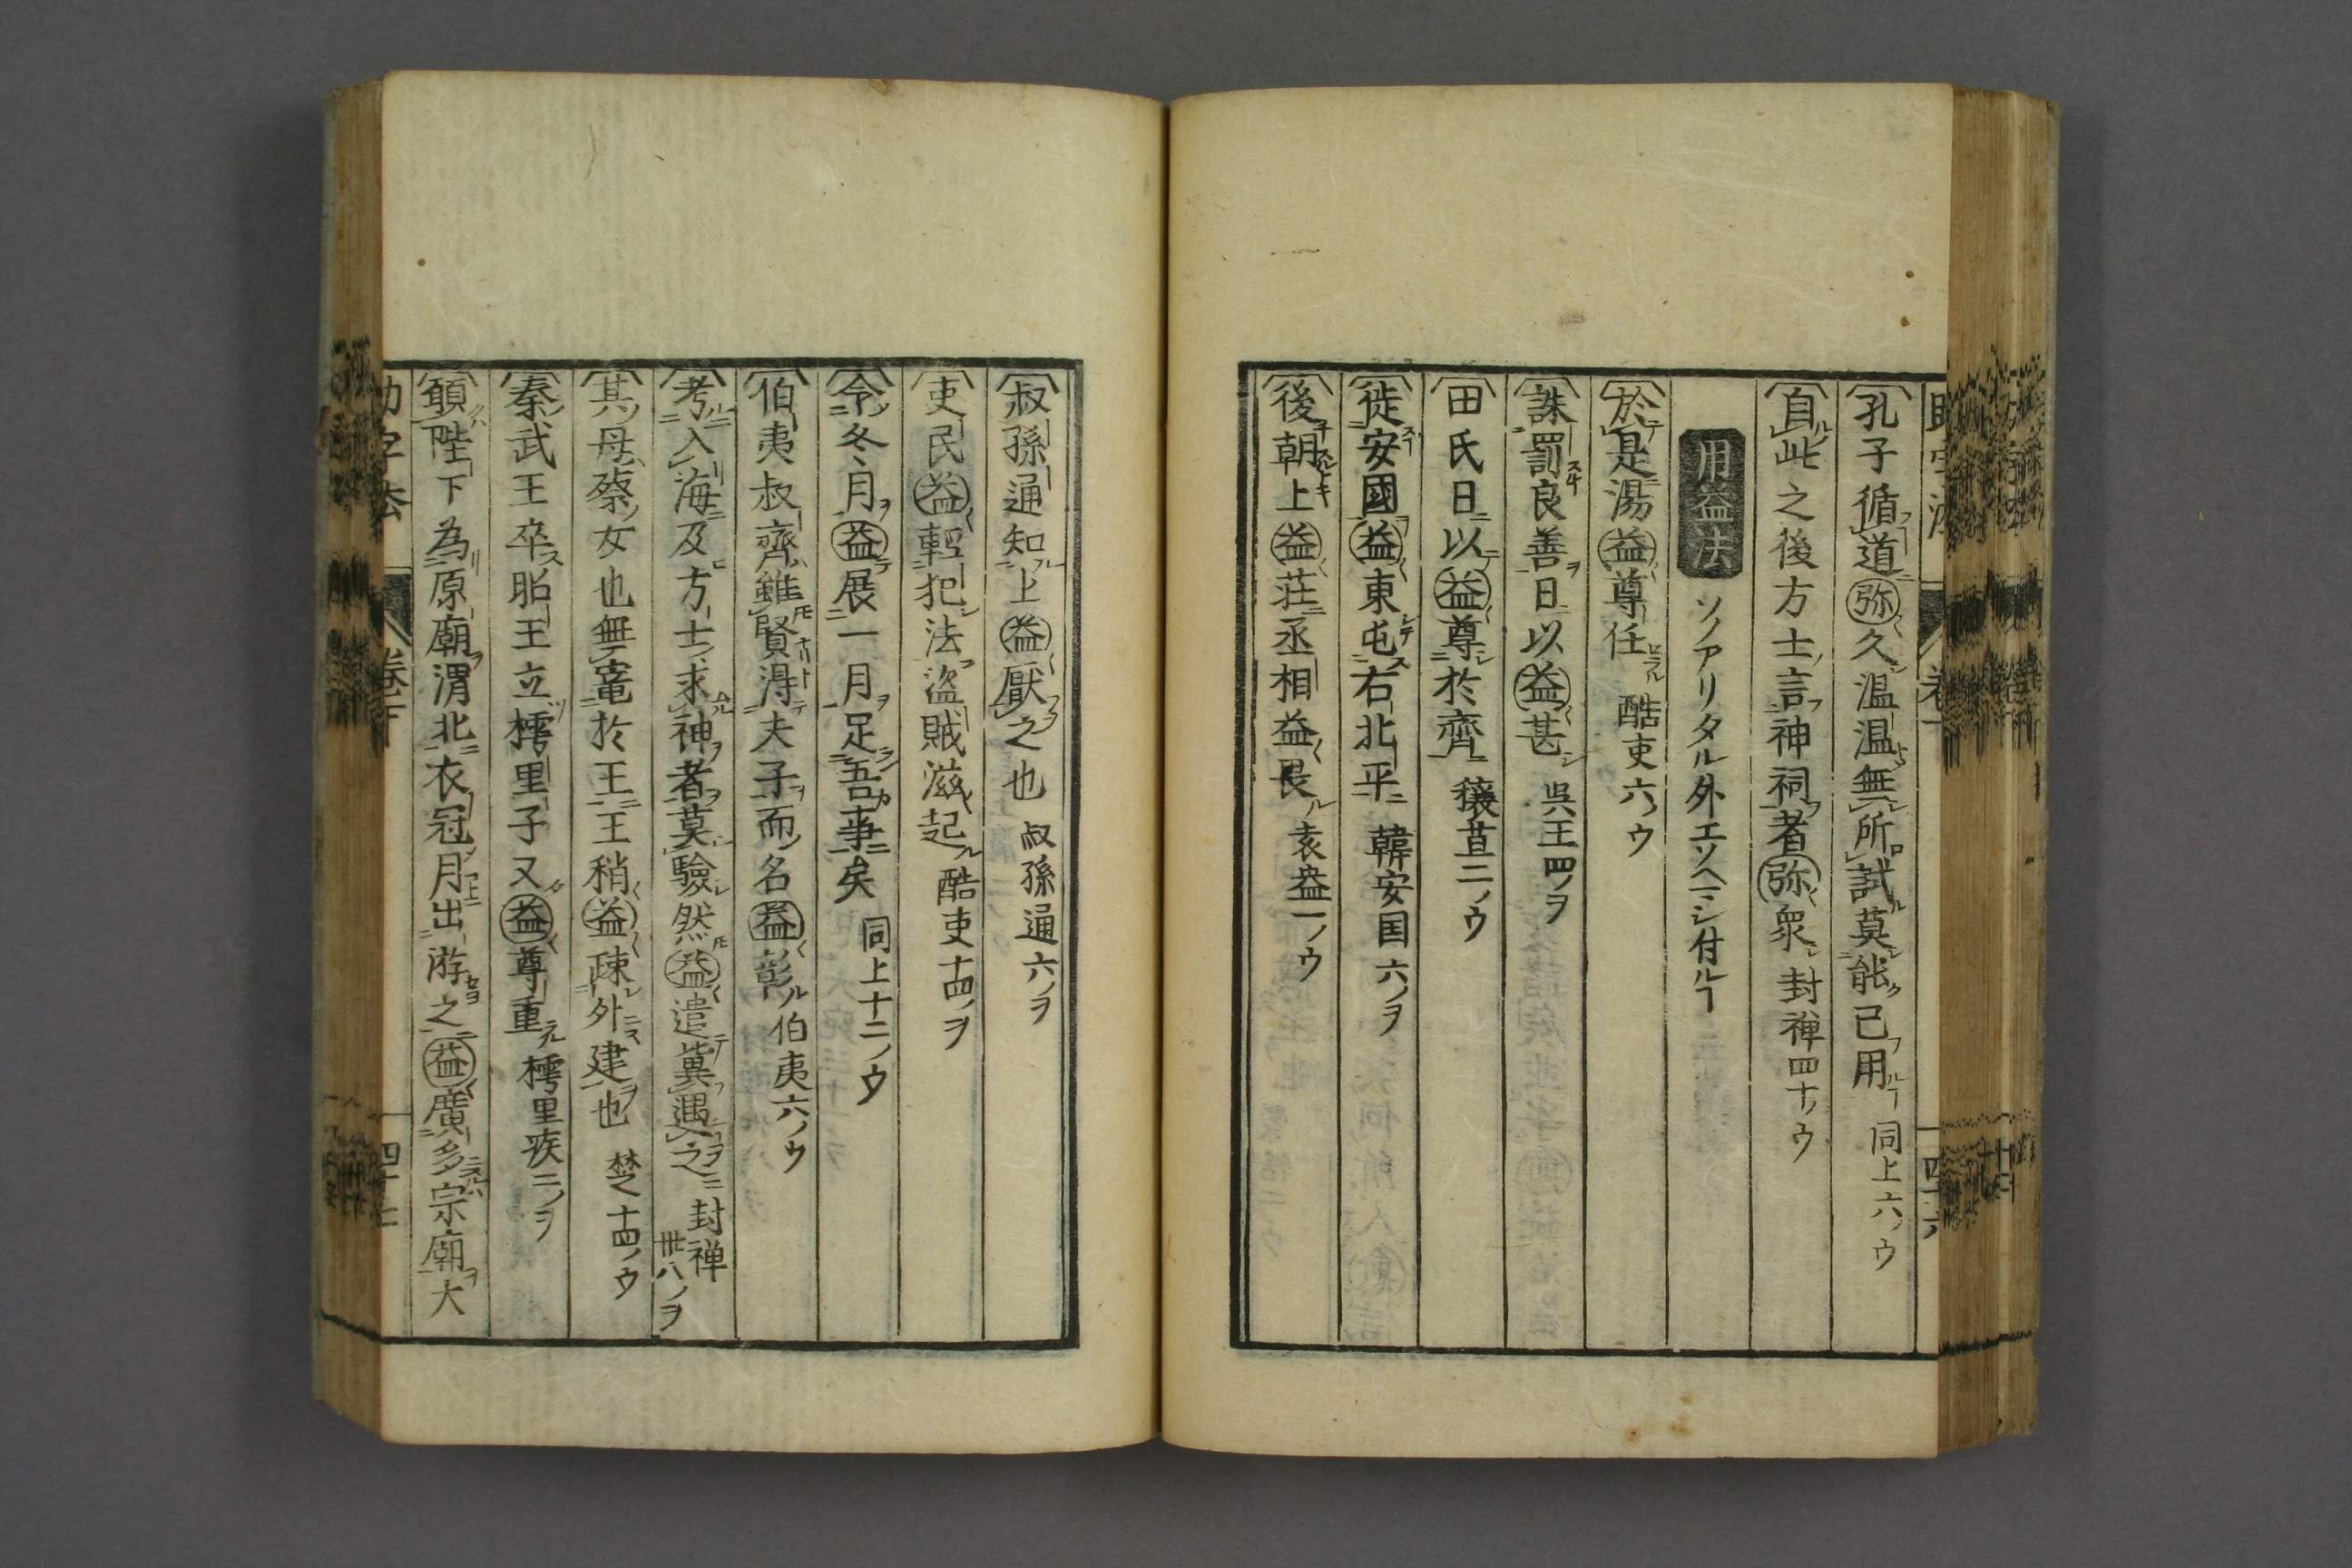 孔子循道弥久温温無所試莫能己用 同上六ノウ
自此之後方士言神祠者弥衆 封禅四十ノウ
用益法 ソノアリタル外エソヘマシ付ルヿ
於是湯益尊任 酷吏六ノウ
誅罰良善日以益甚 呉王四ノヲ
田氏日以益尊於齊 穰苴二ノウ
徙安國益東屯右北平 韓安国六ノヲ
後朝上益荘丞相益畏 袁盎一ノウ
叔孫通知上益厭之也 叔孫通六ノヲ
吏民益軽犯法盗賊滋起 酷吏十四ノヲ
令冬月益展一月足吾事矣 同上十二ノウ
伯夷叔齊雖賢得夫子而名益彰 伯夷六ノウ
考入海及方士求神者莫驗然益遣冀遇之 封禅卅八ノヲ
其母蔡女也無寵於王王稍益疎外建也 楚十四ノウ
秦武王卒昭王立樗里子又益尊重 樗里疾三ノヲ
願陛下為原廟渭北衣冠月出游之益廣多宗廟大
巻下
四十七